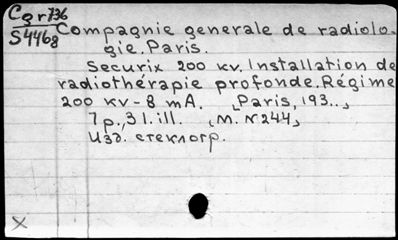 Cgr736
S4468
Compagnie generale de radiolo-
gie. Paris.
Securix 200 kv. Installation de
radiothérapie profonde. Régime
200 kv - 8 mA. [Paris, 193..]
7 p., 3 l. ill. [M. N 244]
Изд. стеклогр.
X